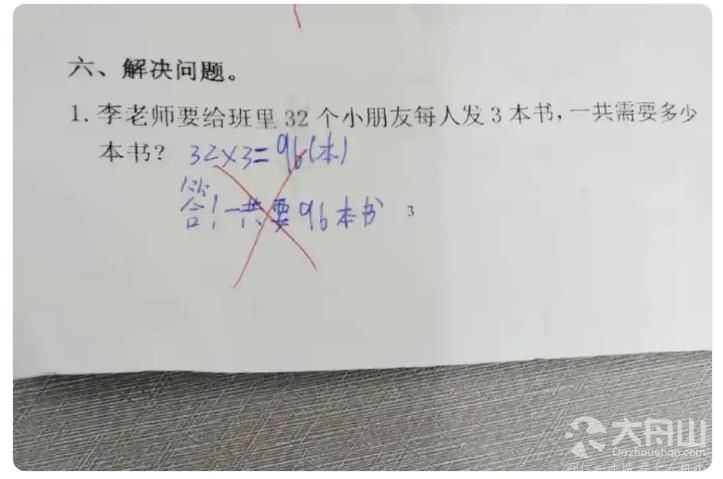 六、解决问题。
1. 李老师要给班里 32 个小朋友每人发 3 本书，一共需要多少
本书？ 32×3=96(本)
答！一共要96本书 3
大舟山
Dazhoushan.com